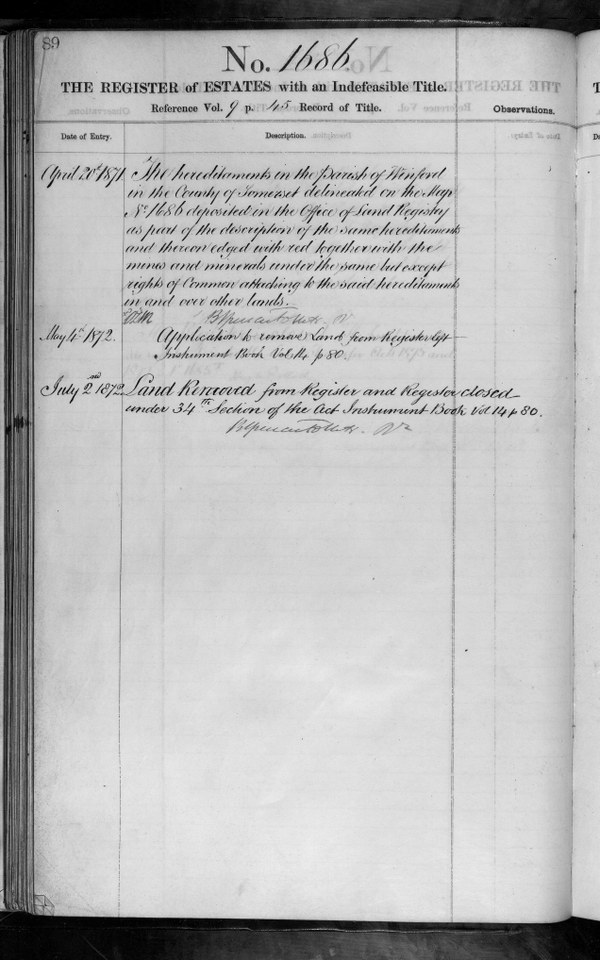 89
No. 1686.
THE REGISTER of ESTATES with an Indefeasible Title.
Reference Vol. 9 p. 45 Record of Title.
Observations.
Date of Entry.
Description.
April 20th 1871.
The hereditaments in the Parish of Winford
in the County of Somerset delineated on the Map
No 1686 deposited in the Office of Land Registry
as part of the description of the same hereditaments
and thereon edged with red together with the
mines and minerals under the same but except
rights of Common attaching to the said hereditaments
in and over other lands.
May 4th 1872.
Application to remove Land from Register left
Instrument Book Vol 14 p 80
July 2nd 1872
Land Removed from Register and Register closed
under 34th Section of the Act Instrument Book Vol 14 p 80.